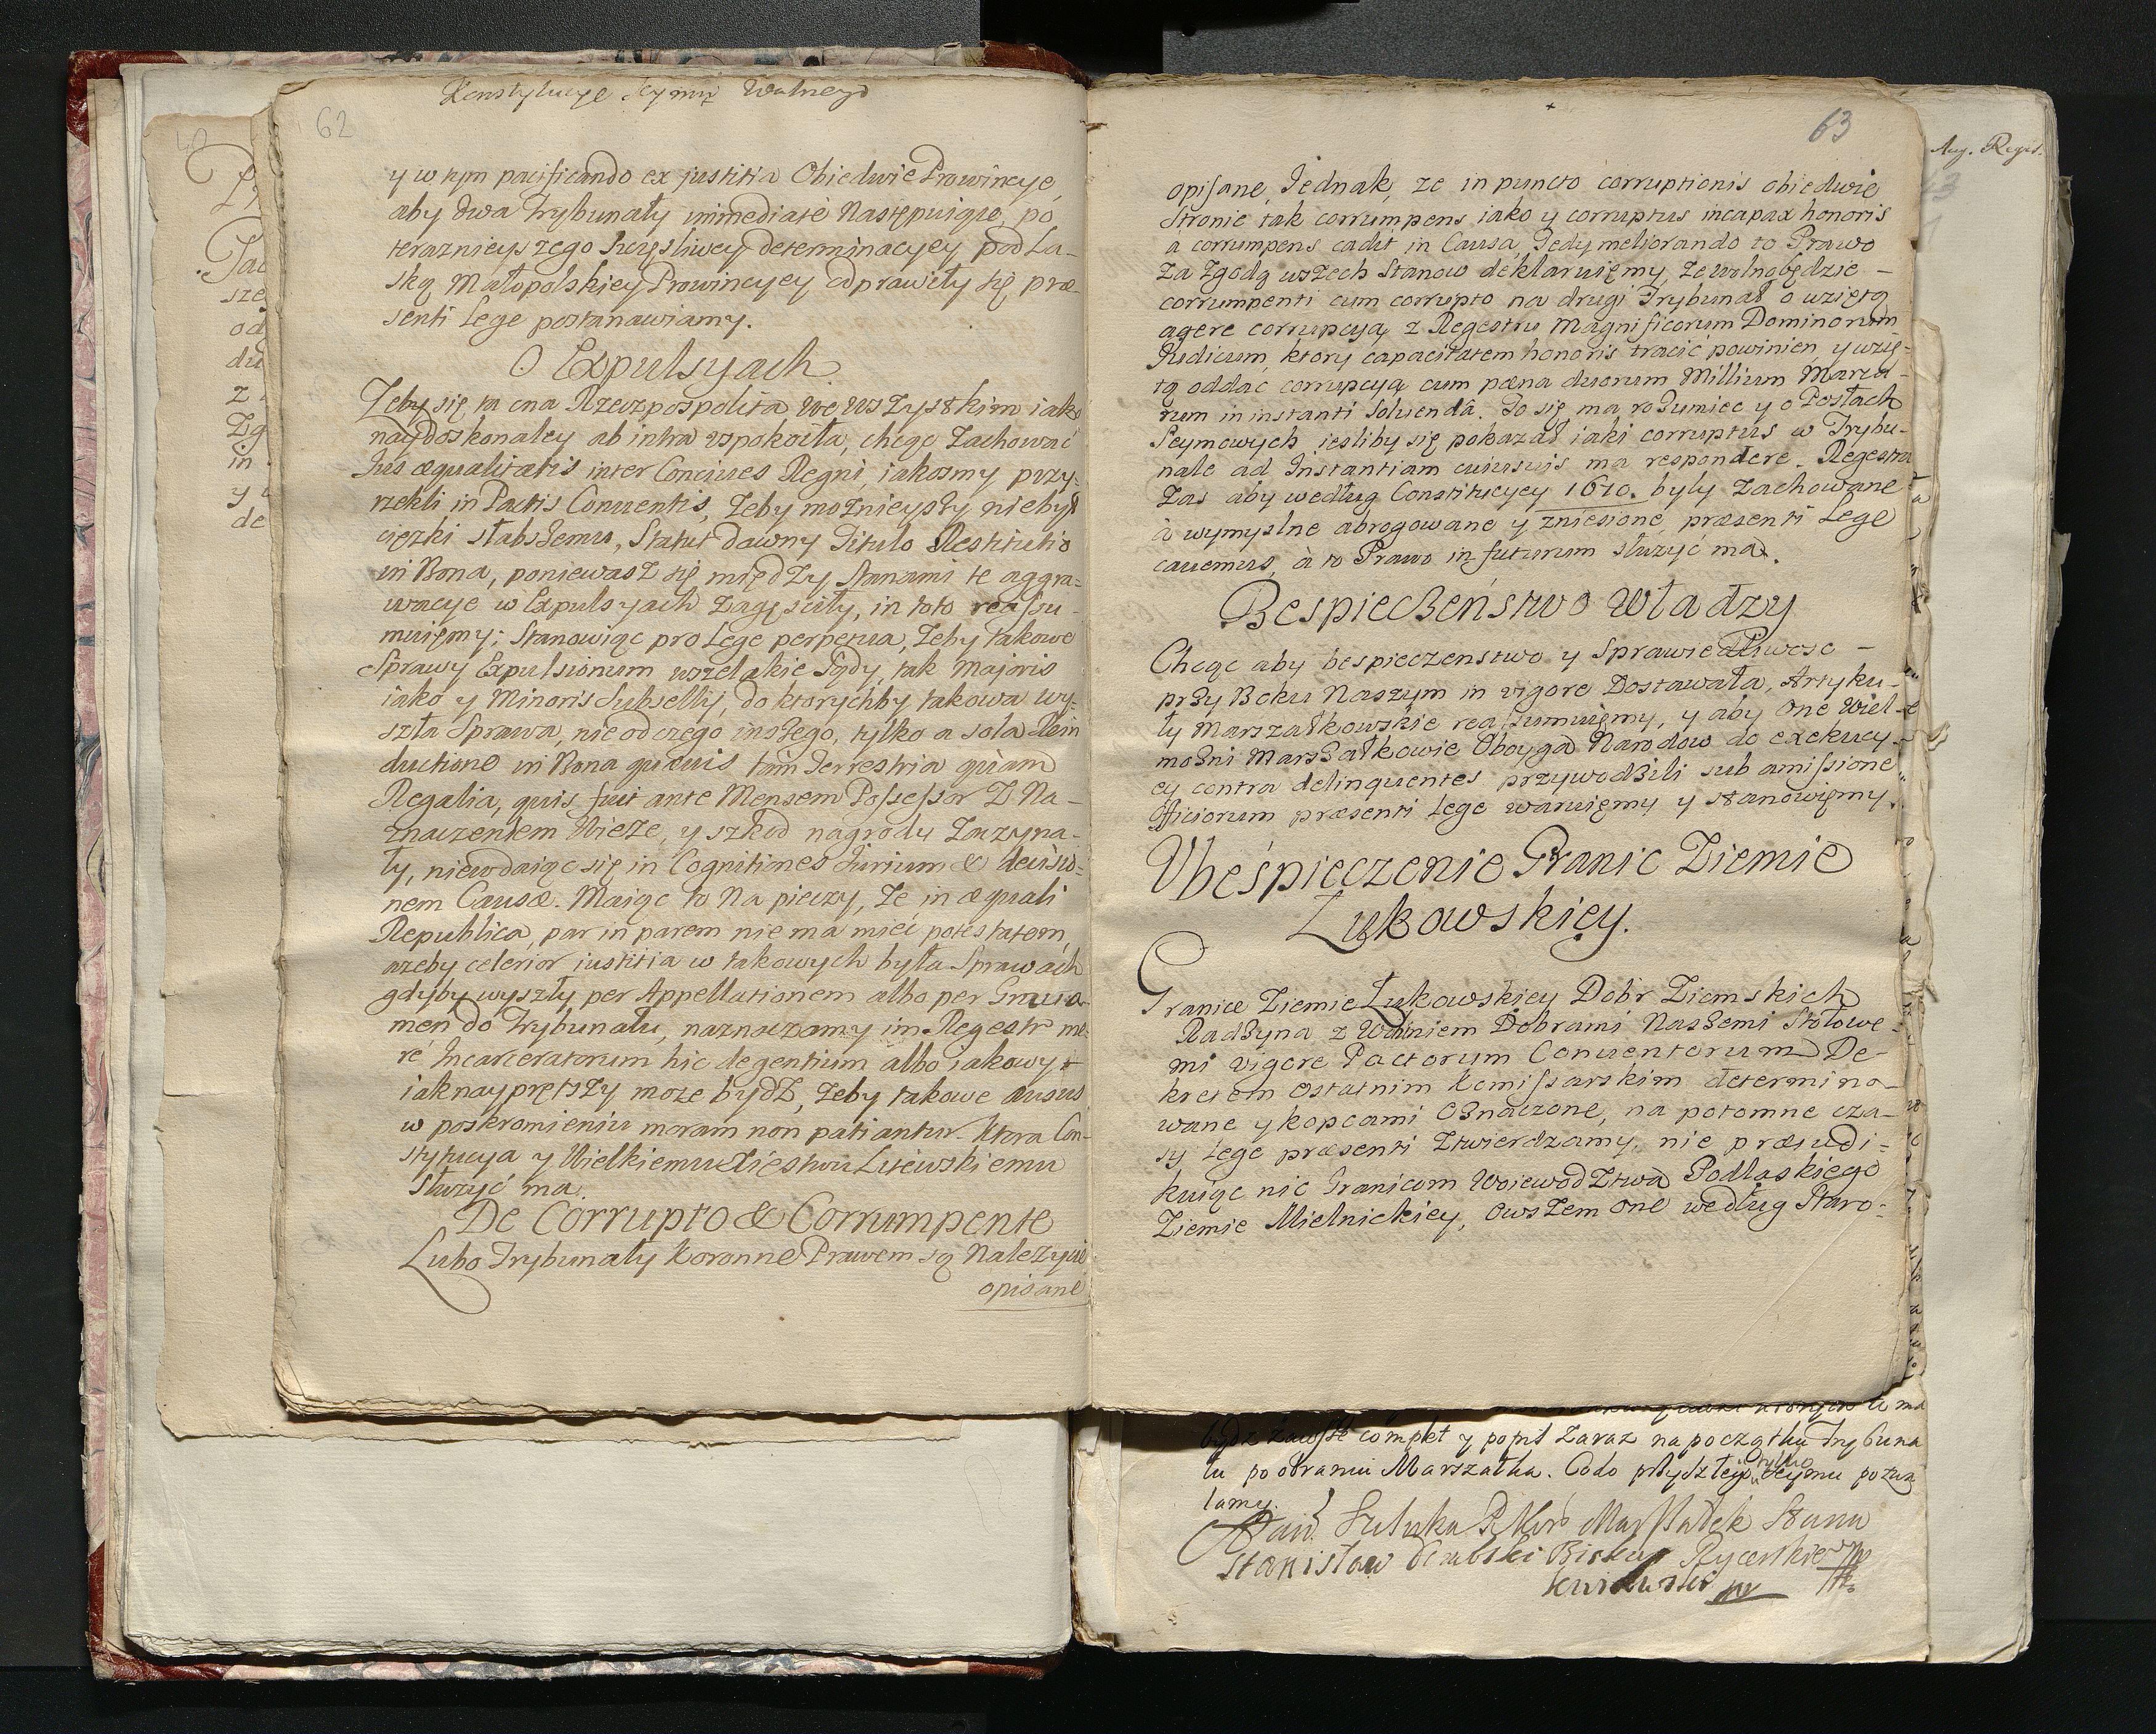 Konstytucye Seymu Walnego
62
y w tym pacificando ex justitia Obiedwie Prowincye,
aby dwa Trybunały immediatè Następuiące, po
teraznieyszego szczęsliwey determinacyey pod La-
ską Małopolskiey Prowincyey odprawiły się præ-
senti Lege postanawiamy.
O Expulsyach
Zeby się ta cna Rzeczpospolita We wszystkim iako
naydoskonaley ab intra uspokoiła, chcąc zachować
Jus æqualitatis inter Conciues Regni, iakosmy przy-
rzekli in Pactis Conuentis, Zeby możnieyszy niebył
cięzki słabszemu, Statut dawny Titulo Restitutio
in Bona, poniewasz się między Stanami te aggra-
wacye w Expulsyach zagęsciły, in toto reassu-
muięmy; Stanowiąc pro Lege perpetua, Zeby takowe
Sprawy Expulsionum wszelakie Sądy, tak majoris
iako y Minoris Subsellij, do ktorychby takowa wy-
szła Sprawa, nie od czego inszego, tylko a sola Rein
ductione in Bona quævis tam Terrestria quàm
Regalia, quis fuit ante Mensem Possessor Z Na-
znaczeniem Wieże, y szkod nagrody Zaczyna-
ły, niewdaiąc się in Cognitiones Jurium & decisio-
nem Causæ. Maiąc to Na pieczy, Ze in æquali
Republica, par in parem nie ma mieć potestatem,
azeby celerior iustitia w takowych była Sprawach
gdyby wyszły per Appellationem albo per Graua-
men do Trybunału, naznaczamy im Regestr me-
re Incarceratorum hic degentium albo iakowy
iak nayprętszy moze bydź, Zeby takowe ausus
w poskromieniu moram non patiantur. Ktora Con-
stytucya y Wielkiemu Xięstwu Litewskiemu
służyć ma.
De Corrupto & Corrumpente
Lubo Trybunały Koronne Prawem są Nalezycie
opisane
63
opisane, Jednak, ze in puncto corruptionis obiedwie
Stronie tak corrumpens iako y corruptus incapax honoris
a corrumpens cadit in Causa, Tedy meliorando to Prawo
Za Zgodą wszech Stanow deklaruięmy, Ze wolno będzie -
corrumpenti cum corrupto na drugi Trybunał o wziętą
agere corrupcyą z Regestru Magnificorum Dominorum
Judicum, ktory capacitatem honoris tracić powinien, y wzię-
tą oddać corrupcyą cum pæna duorum Millium Marca-
rum in instanti soluenda. To się ma rozumiec y o Posłach
Seymowych, iesliby się pokazał iaki corruptus w Trybu-
nale ad Instantiam cuiusuis ma respondere. Regestra
Zas aby według Constitucyey 1670. były zachowane
à wymyslne abrogowane y zniesione, præsenti Lege
cauemus, à to Prawo in futurum służyć ma.
Bespieczeństwo Władzy
Chcąc aby bespieczenstwo y Sprawiedliwosc -
przy Boku Naszym in vigore Dostawała, Artyku-
ły Marszałkowskie reassumuięmy, y aby One Wiel-
mozni Marszałkowie Oboyga Narodow do exekucy-
ey contra delinquentes przywodzili sub amissione
Officiorum præsenti Lege waruięmy y stanowięmy.
Vbespieczenie Granic Ziemie
Łukowskięy.
Granice Ziemie Łukowskiey Dobr Ziemskich
Radzyna z Woiniem Dobrami Naszemi Stołowe-
mi vigore Pactorum Conuentorum De-
kretem Ostatnim Komissarskim determino-
wane y kopcami Oznaczone, na potomne cza-
sy Lege præsenti Ztwierdzamy, nie præiudi-
kuiąc nic Granicom Woiewodztwa Podlaskiego
Ziemie Mielnickiey, Owszem one według Staro-
Aug. Regis.
bydz zawsze complet y popis zaraz na początku Trybuna
łu po obraniu Marszałka. Co do przyszłego Seymu
lamy.
Stanisław Biskup